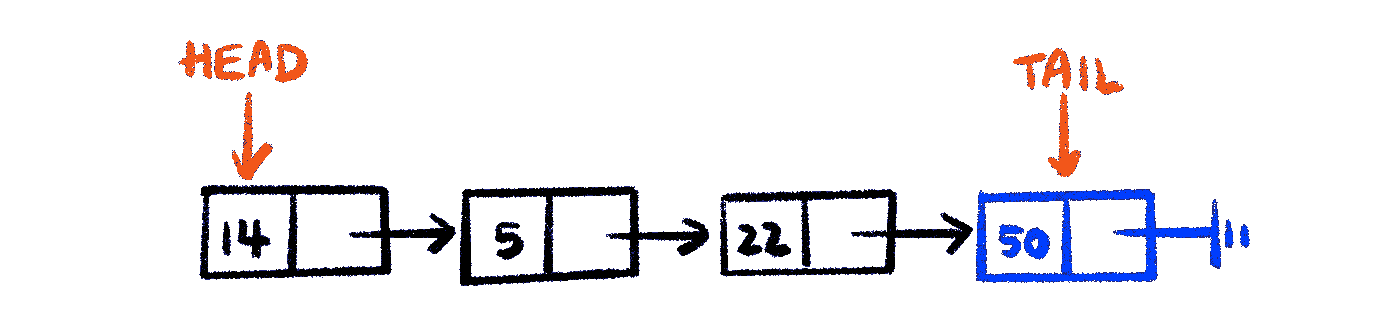 HEAD
TAIL
14 5 22 50